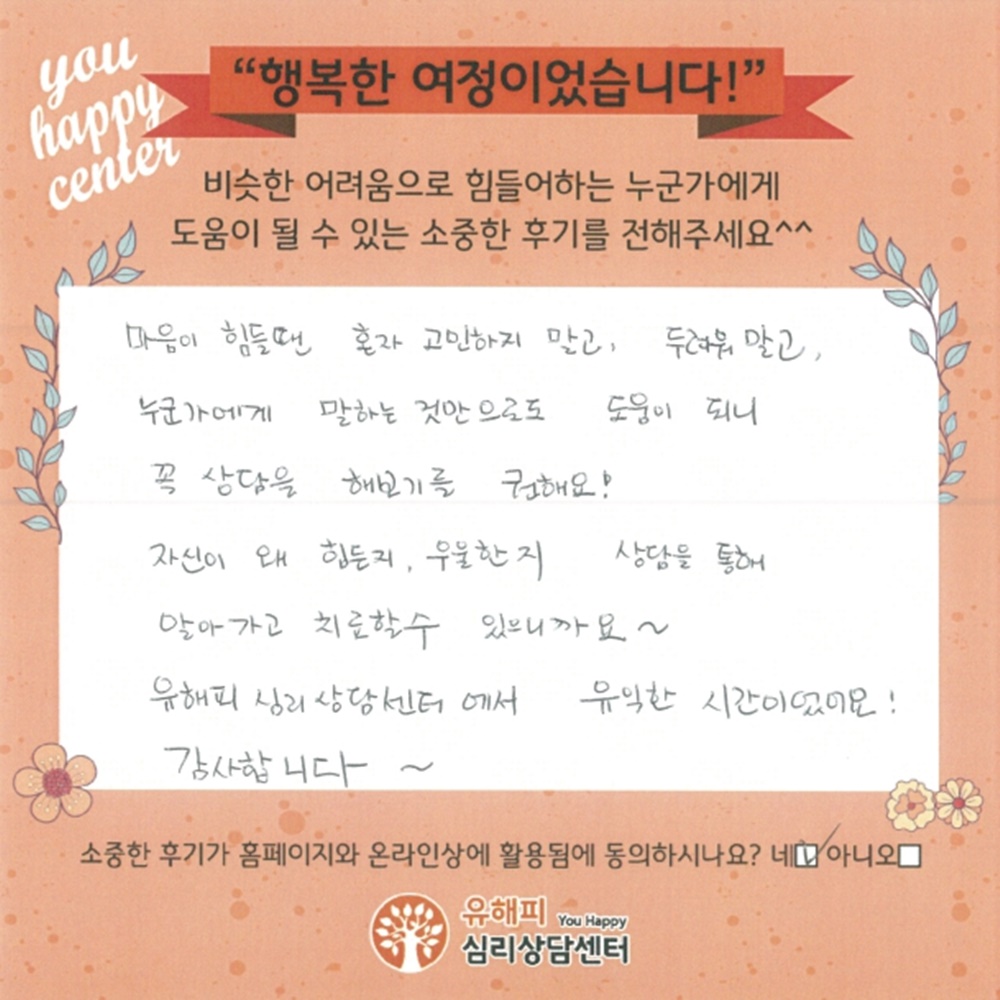 you
happy
center
“행복한 여정이었습니다!”
비슷한 어려움으로 힘들어하는 누군가에게
도움이 될 수 있는 소중한 후기를 전해주세요^^
마음이 힘들땐 혼자 고민하지 말고, 두려워 말고,
누군가에게 말하는 것만으로도 도움이 되니
꼭 상담을 해보기를 권해요!
자신이 왜 힘든지, 우울한지 상담을 통해
알아가고 치료할수 있으니까요~
유해피 심리상담센터에서 유익한 시간이었어요!
감사합니다~
소중한 후기가 홈페이지와 온라인상에 활용됨에 동의하시나요? 네☑ 아니오☐
유해피 You Happy
심리상담센터